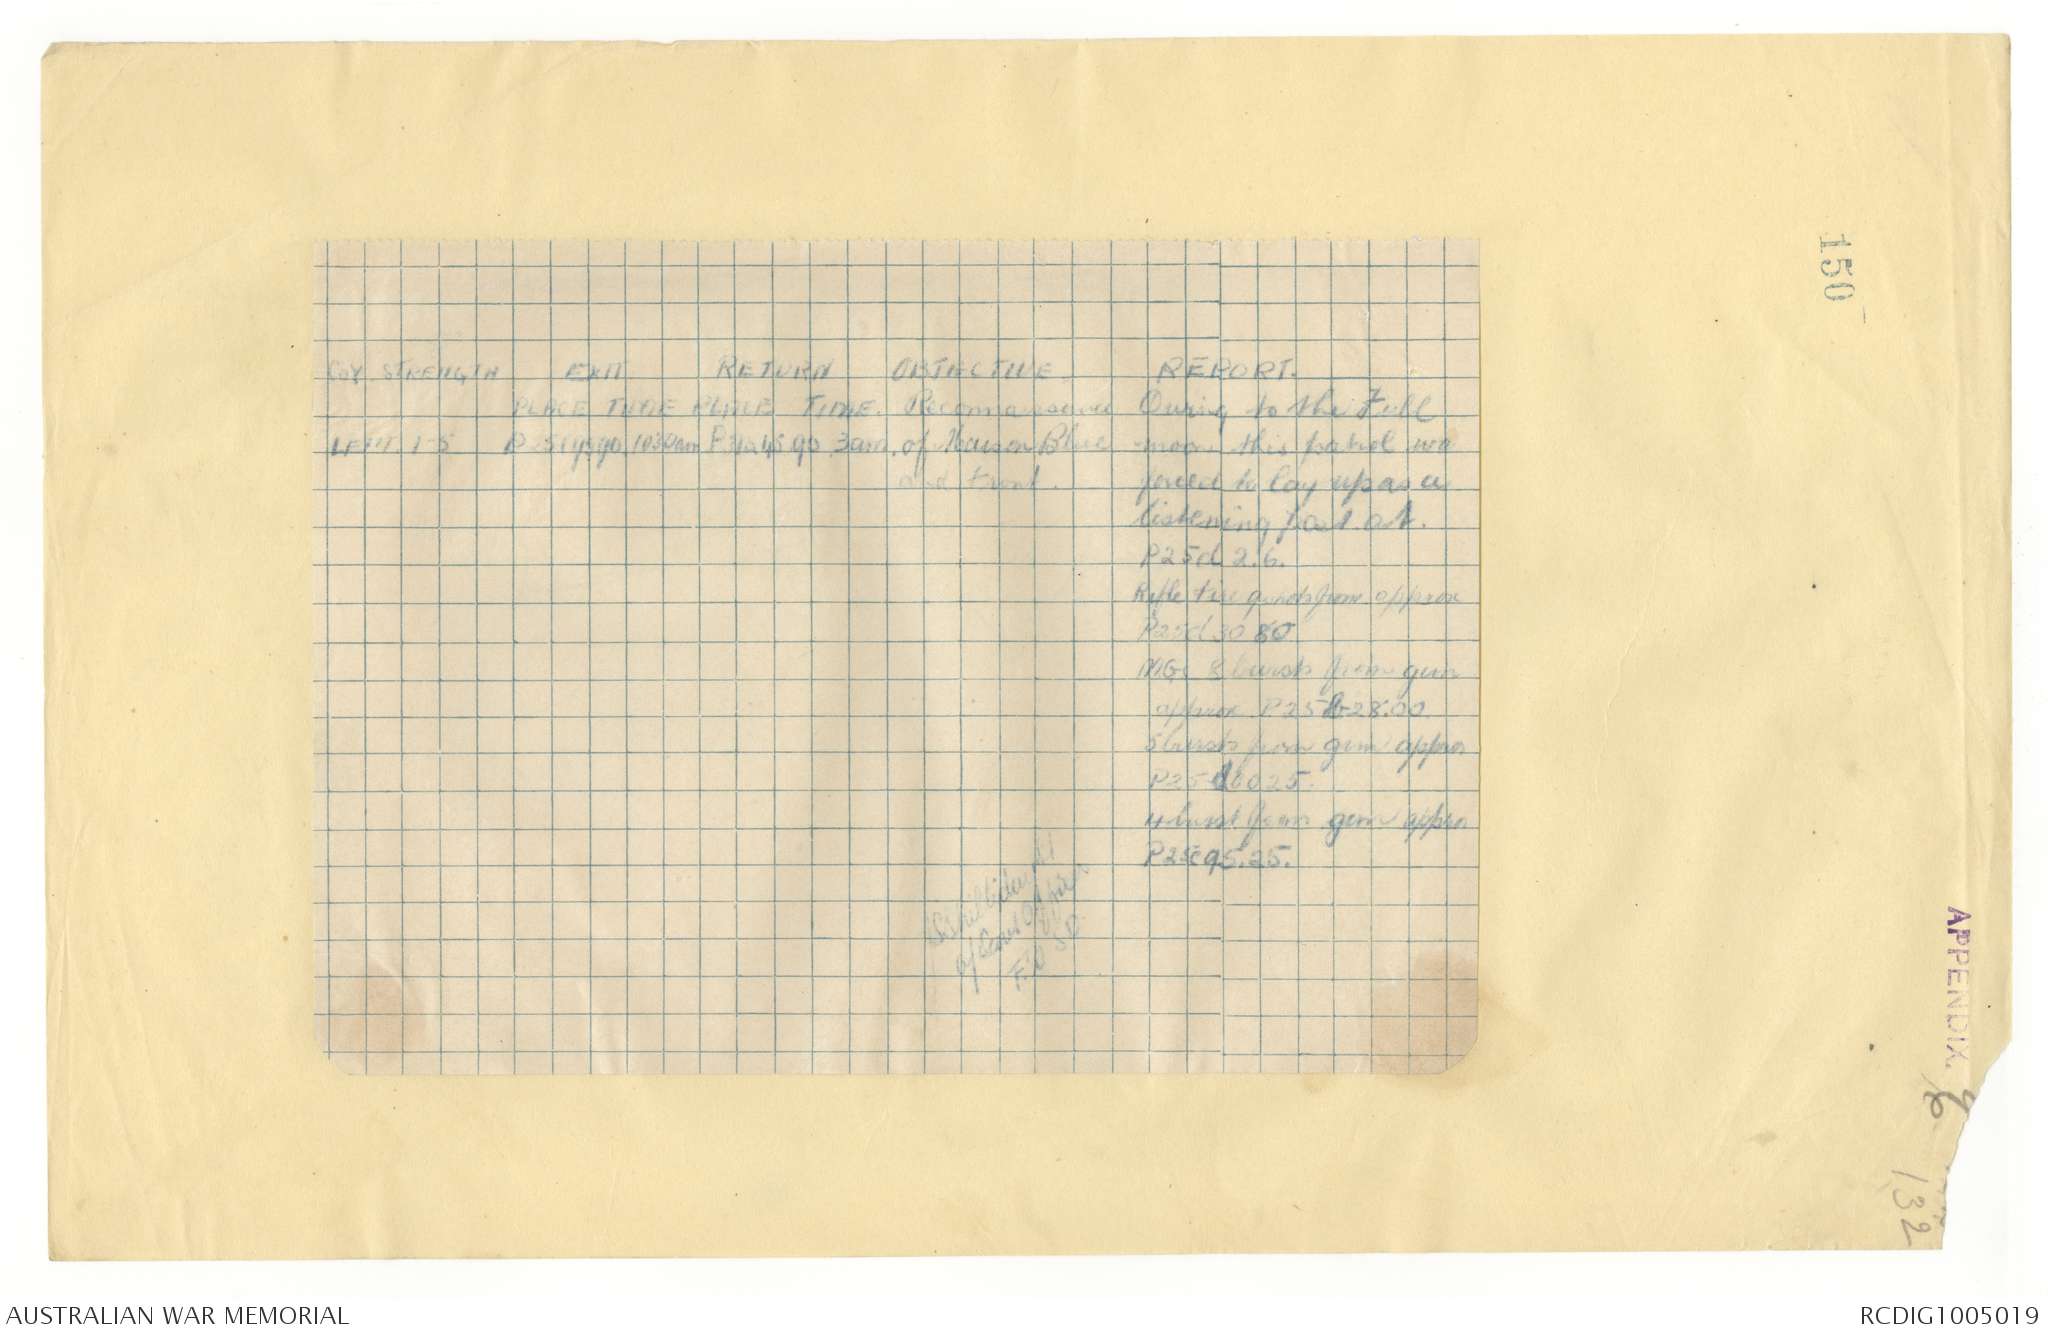 150
COY STRENGTH EXIT RETURN OBJECTIVE REPORT.
PLACE TIME PLACE TIME. Reconnaissance Owing to the Full
LEFT. 1-5 1030am 3am. of Maison Blue moon this patrol was
and Front. forced to lay up as a
listening post at.
P25d 2.6.
Rifle Fire from approx
P25d 30 80
MGs 8 bursts from gun
approx P25b 28.00
5 bursts from gun approx
P25d 60 25.
4 burst from gun approx
P25c 95.25.
APPENDIX.
132
AUSTRALIAN WAR MEMORIAL
RCDIG1005019